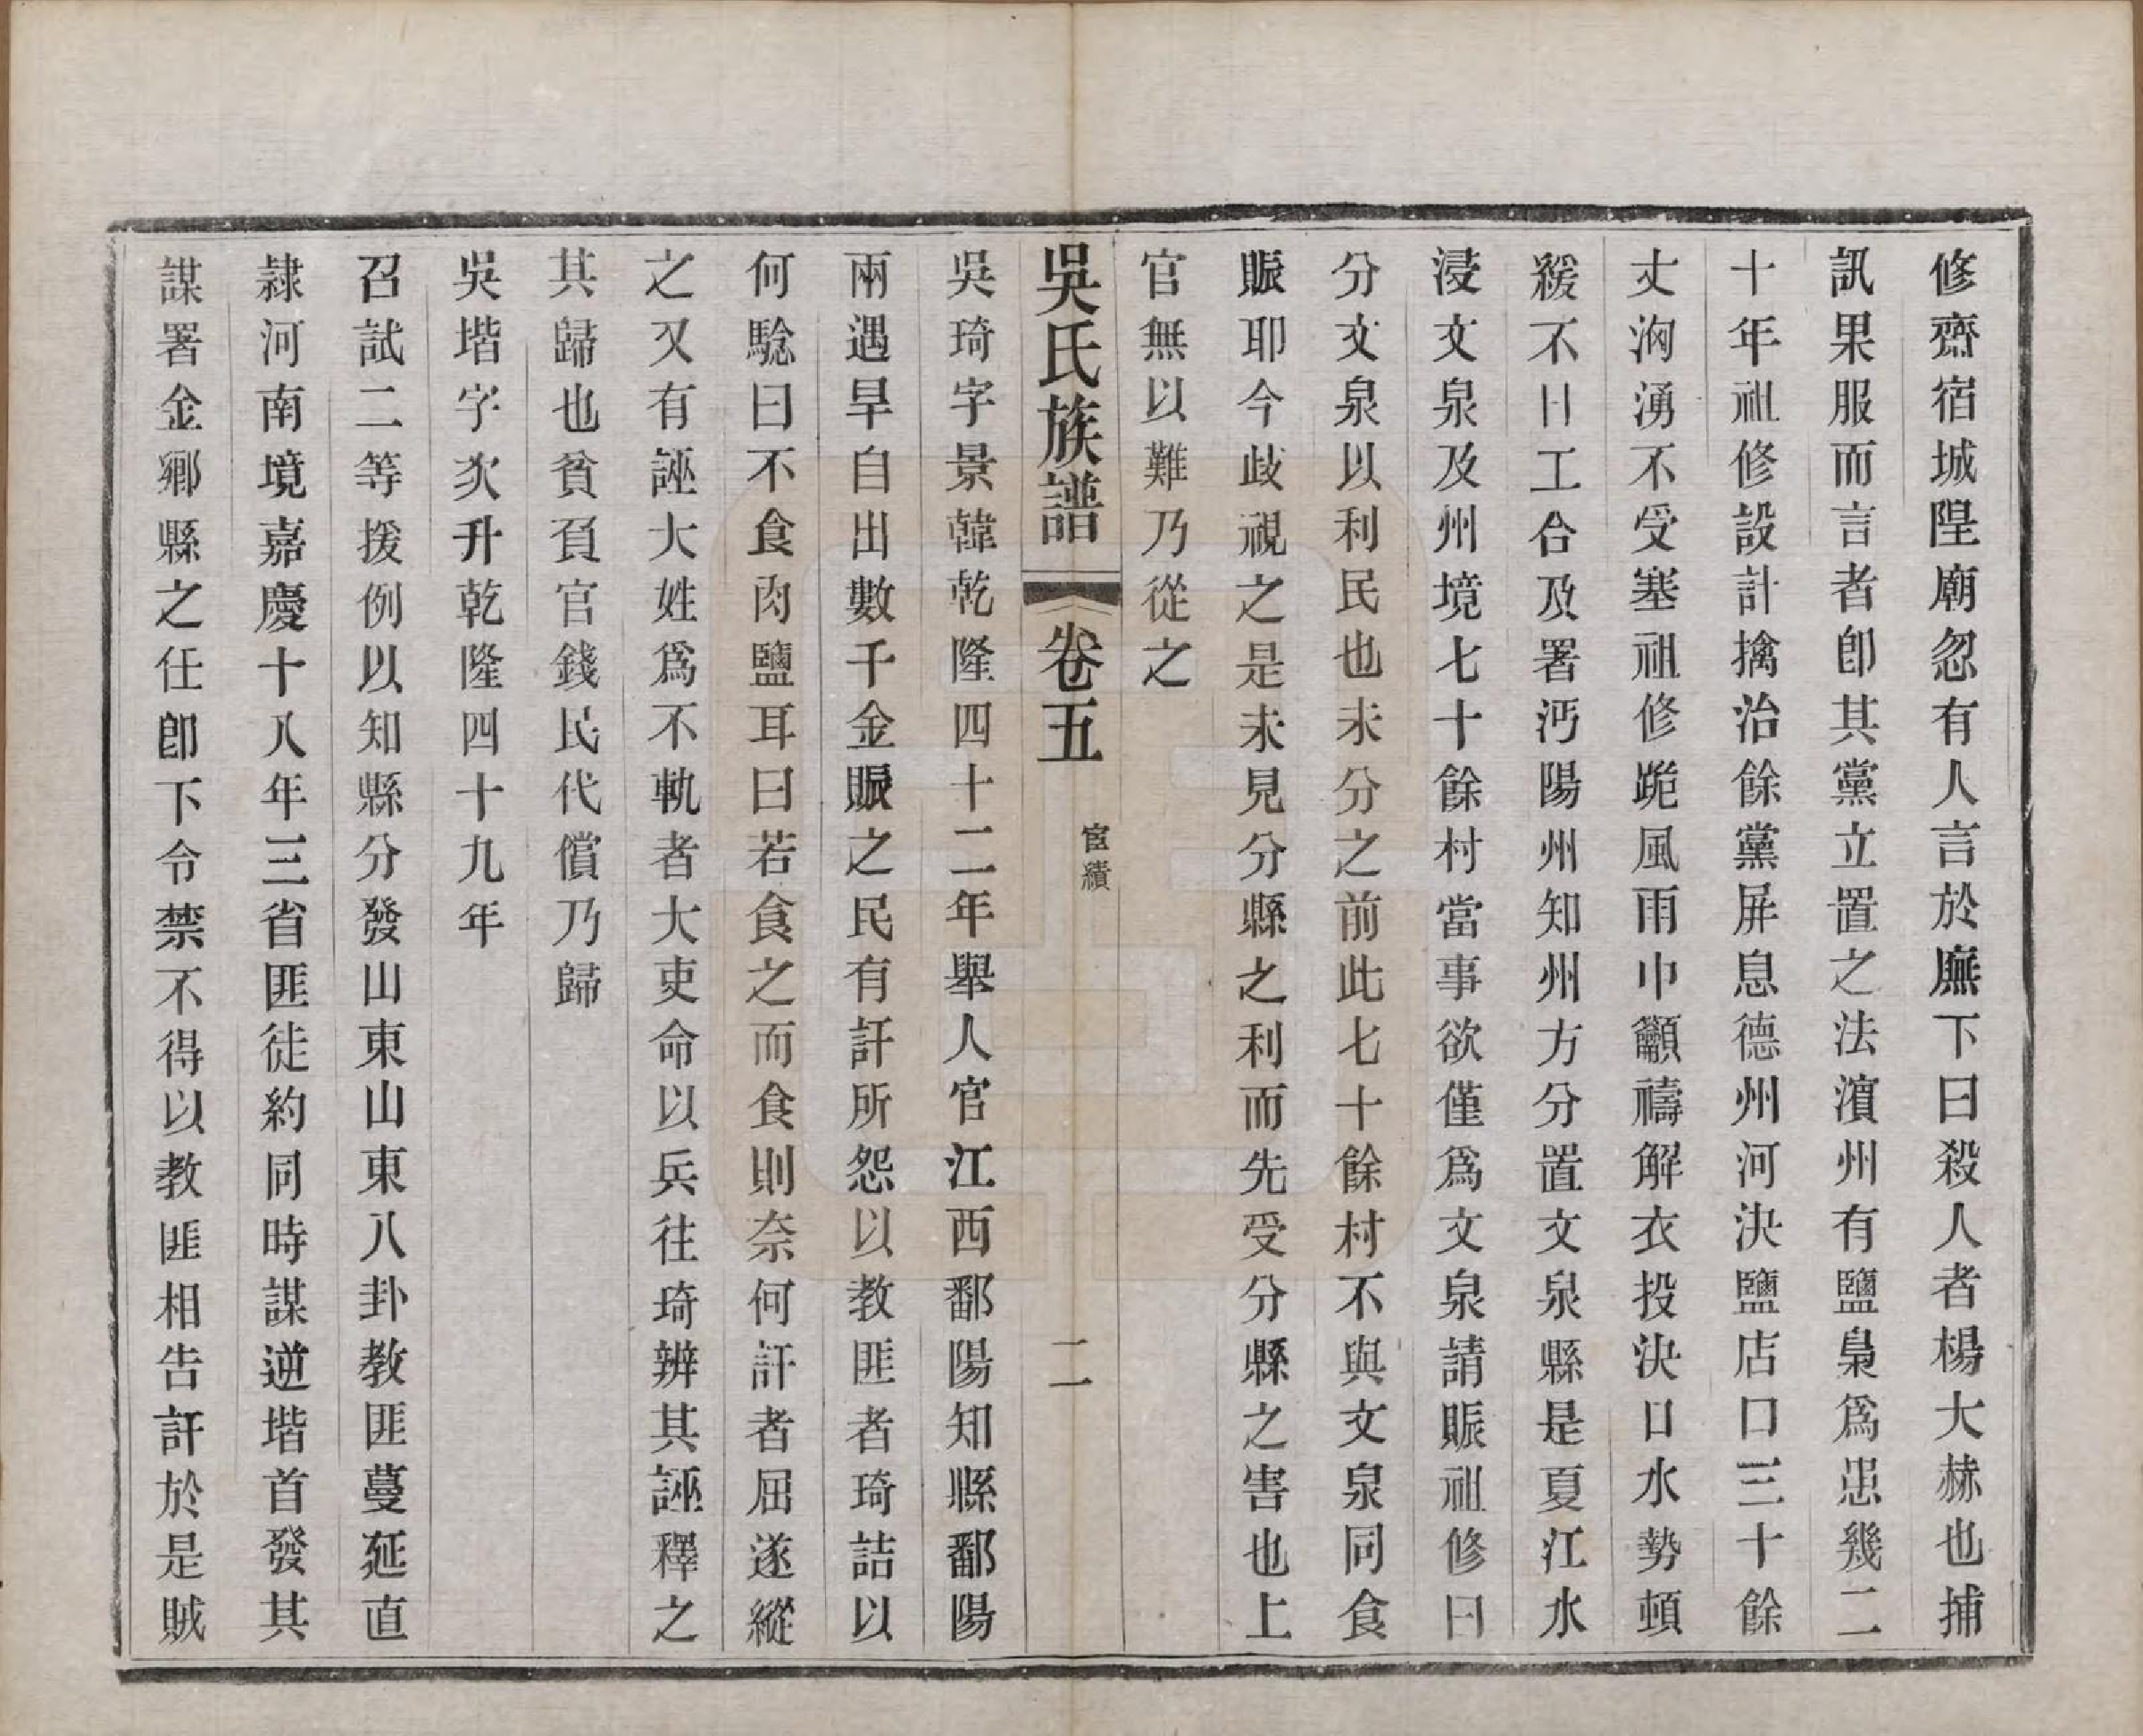 修齋宿城隍廟忽有人言於廡下曰殺人者楊大赫也捕
訊果服而言者卽其黨立置之法濱州有鹽梟爲患幾二
十年祖修設計擒治餘黨屏息德州河決鹽店口三十餘
丈洶湧不受塞祖修跪風雨巾籲禱解衣投決口水勢頓
緩不日工合及署沔陽州知州方分置文泉縣是夏江水
浸文泉及州境七十餘村當事欲僅爲文泉請賑祖修曰
分文泉以利民也未分之前此七十餘村不與文泉同食
賑耶今歧視之是未見分縣之利而先受分縣之害也上
官無以難乃從之
吳氏族譜 卷五 宦績 二
吳琦字景韓乾隆四十二年舉人官江西鄱陽知縣鄱陽
兩遇旱自出數千金賑之民有訐所怨以教匪者琦詰以
何騐曰不食肉鹽耳曰若食之而食則奈何訐者屈遂縱
之又有誣大姓爲不軌者大吏命以兵往琦辨其誣釋之
其歸也貧負官錢民代償乃歸
吳堦字次升乾隆四十九年
召試二等援例以知縣分發山東山東八卦教匪蔓延直
隸河南境嘉慶十八年三省匪徒約同時謀逆堦首發其
謀署金鄉縣之任卽下令禁不得以教匪相告訐於是賊